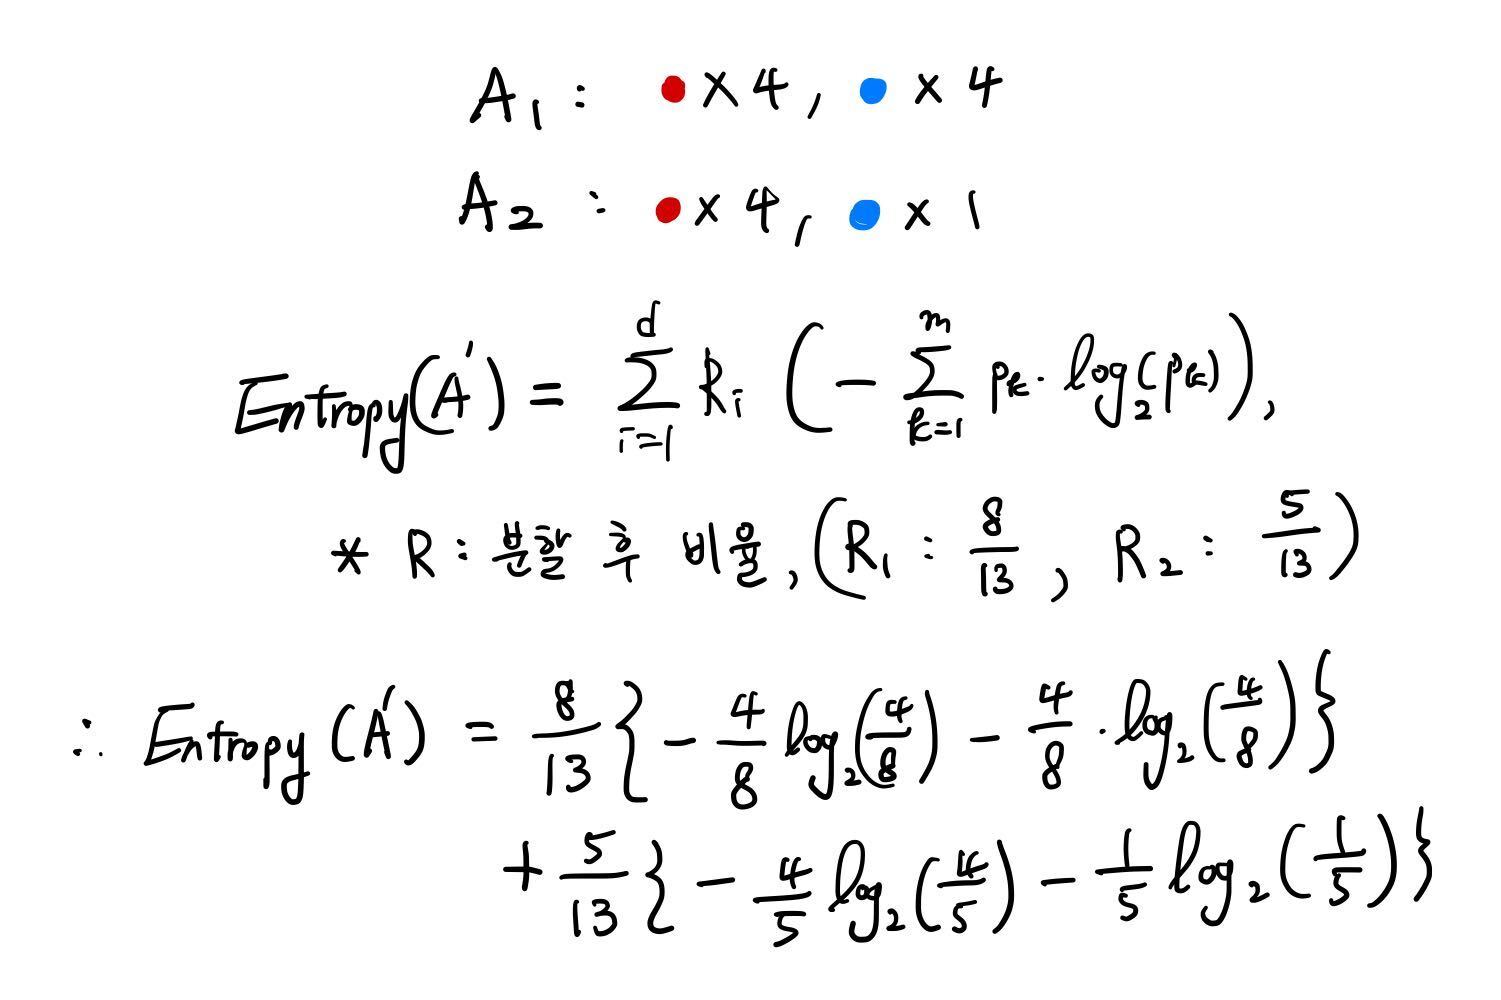 A₁ : ● × 4 , ● × 4
A₂ : ● × 4 , ● × 1
Entropy(A') = ∑_{i=1}^{d} R_i ( − ∑_{k=1}^{m} p_k · log₂(p_k) ) ,
* R : 분할 후 비율 , ( R₁ : 8/13 , R₂ : 5/13 )
∴ Entropy (A') = 8/13 { − 4/8 log₂(4/8) − 4/8 · log₂(4/8) }
+ 5/13 { − 4/5 log₂(4/5) − 1/5 log₂(1/5) }